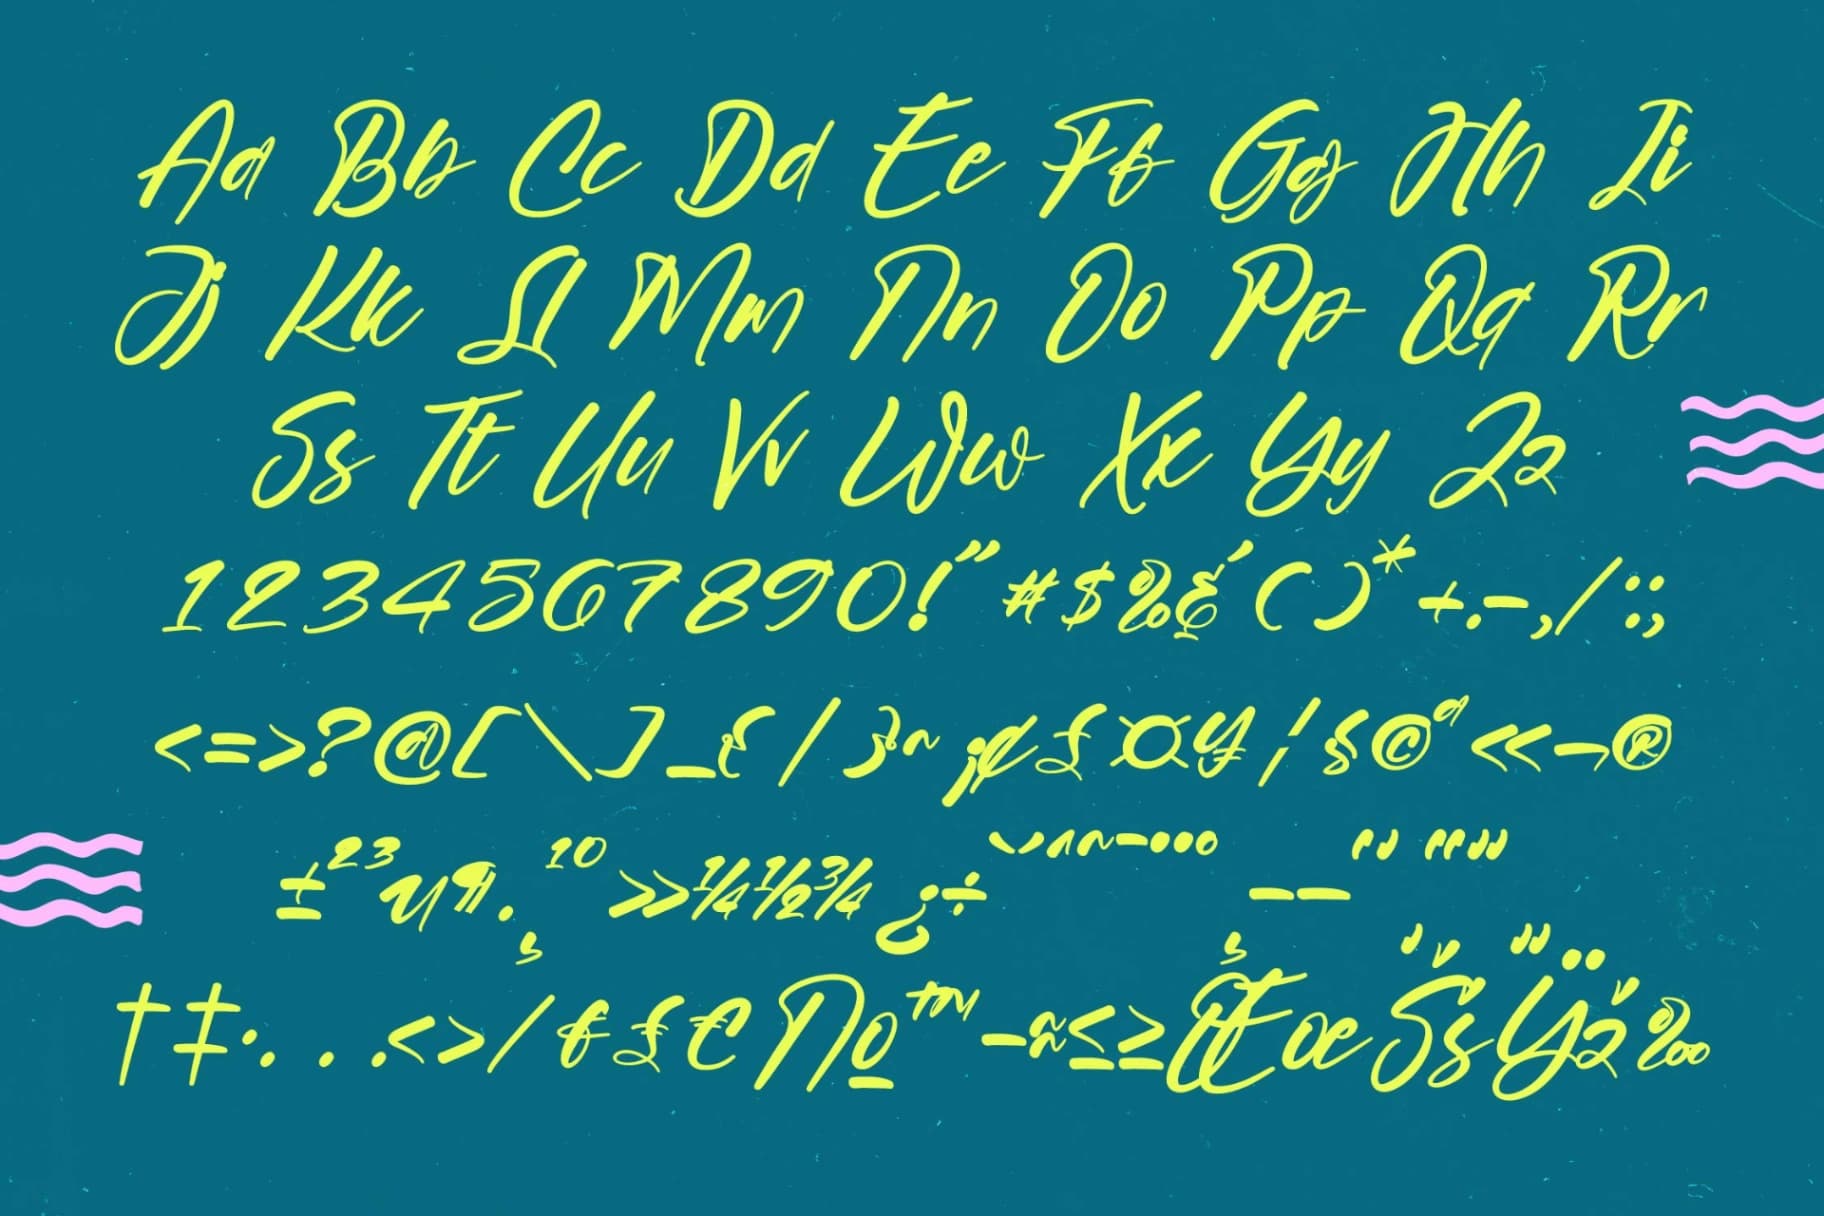 Aa Bb Cc Dd Ee Ff Gg Hh Ii
Jj Kk Ll Mm Nn Oo Pp Qq Rr
Ss Tt Uu Vv Ww Xx Yy Zz
1234567890!"#$%&'()*+.-,/:;
<=>?@[\]_{/}~¡¢£¤¥¦§©ª«¬®
±²³µ¶.¸¹º»¼½¾¿÷˘^~¯•••——‘’“”
†‡·. . .<>/ƒ£€№™−≈≤≥ŒœŠšŸž‰